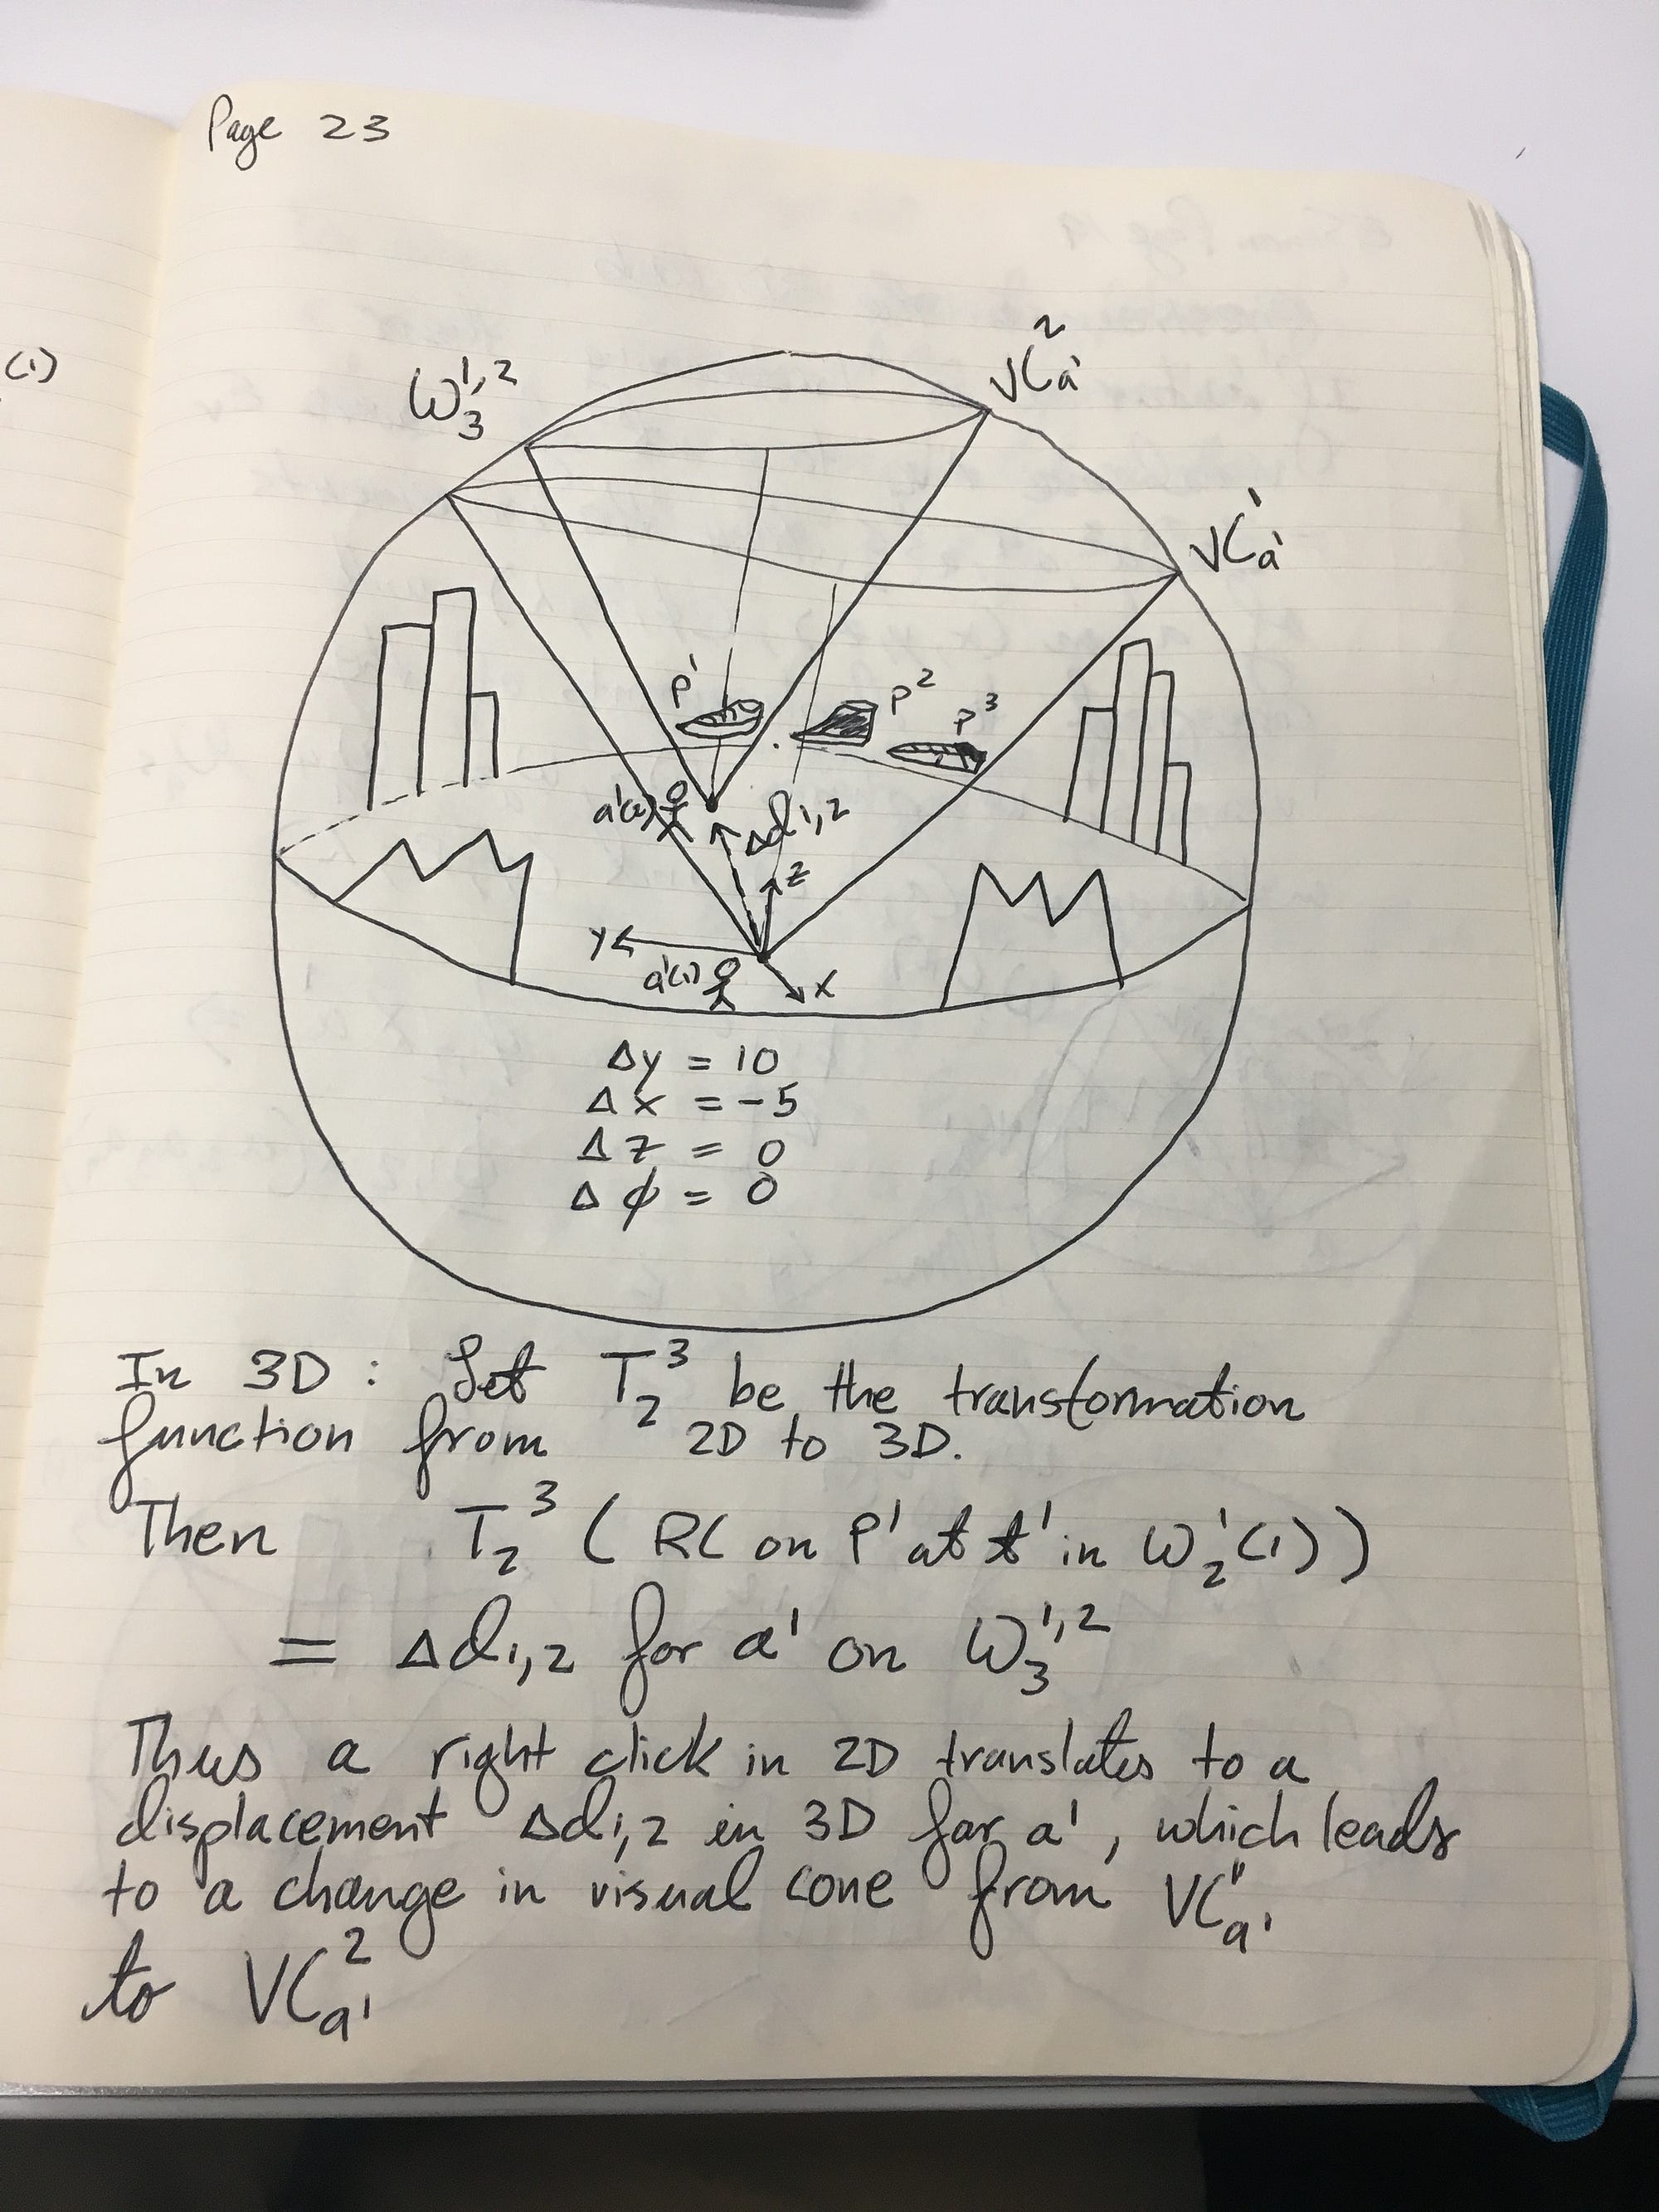 Page 23
(1)
W₃¹,²
VC²ₐ¹
VC¹ₐ¹
P¹
P²
P³
a¹(2)
Δd₁,₂
z
y
a¹(1)
x
Δy = 10
Δx = -5
Δz = 0
Δϕ = 0
In 3D : Let T₂³ be the transformation
function from 2D to 3D.
Then T₂³ ( RC on P¹ at t¹ in W₂¹(1) )
= Δd₁,₂ for a¹ on W₃¹,²
Thus a right click in 2D translates to a
displacement Δd₁,₂ in 3D for a¹, which leads
to a change in visual cone from VC¹ₐ¹
to VC²ₐ¹